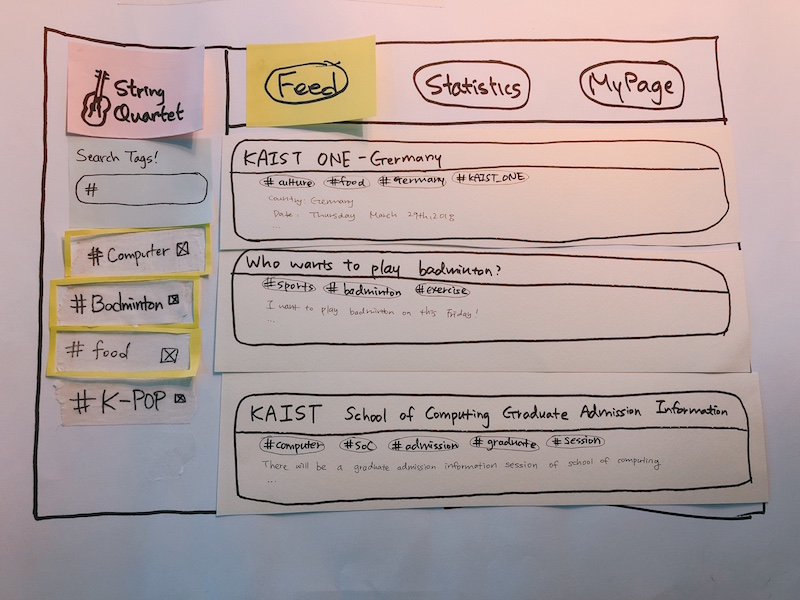 String
Quartet
Feed
Statistics
MyPage
Search Tags!
#
# Computer
# Badminton
# food
# K-POP
KAIST ONE - Germany
# culture #food # Germany #KAIST_ONE
Country: Germany
Date: Thursday March 29th, 2018
...
Who wants to play badminton?
#sports # badminton #exercise
I want to play badminton on this Friday!
...
KAIST School of Computing Graduate Admission Information
#computer #SoC #admission #graduate #Session
There will be a graduate admission information session of school of computing
...